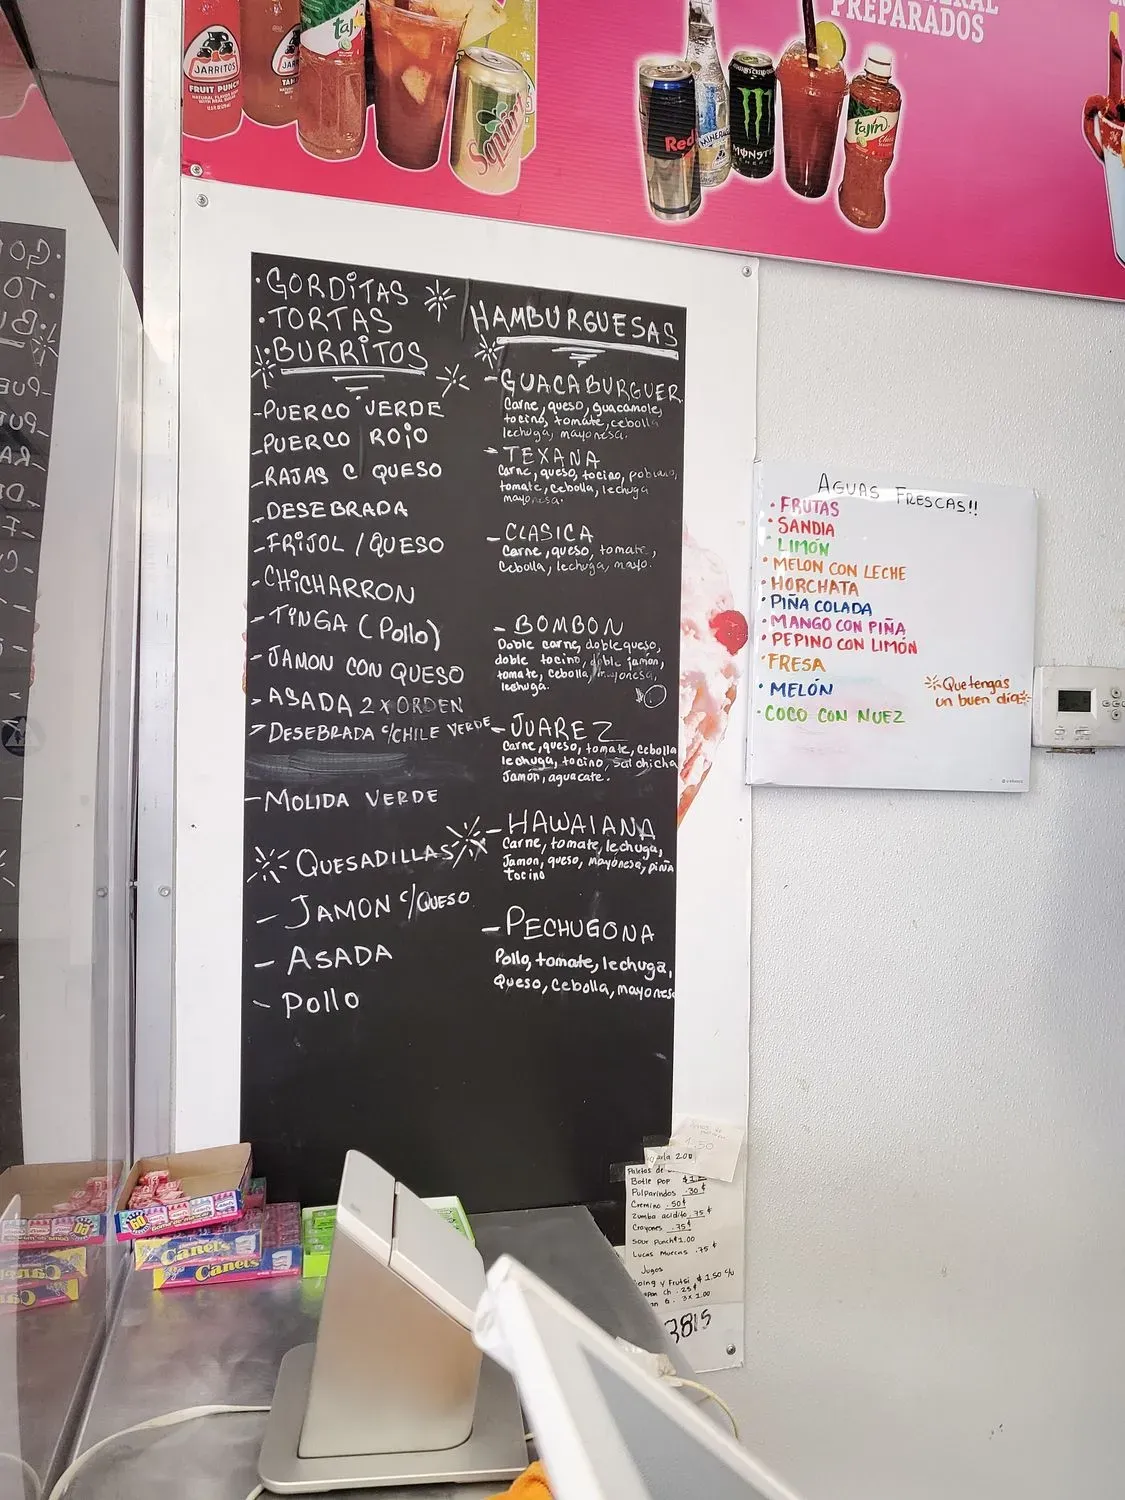 JARRITOS
FRUIT PUNCH
JARR
TAM
Taj
Squirt
MINERAL
PREPARADOS
Red
MINERA
MONSTER
tajín
· GORDITAS
· TORTAS
· BURRITOS
- PUERCO VERDE
- PUERCO ROJO
- RAJAS C QUESO
- DESEBRADA
- FRIJOL / QUESO
- CHICHARRON
- TINGA (Pollo)
- JAMON CON QUESO
- ASADA 2 x ORDEN
- DESEBRADA c/CHILE VERDE
- MOLIDA VERDE
QUESADILLAS
- JAMON c/QUESO
- ASADA
- Pollo
HAMBURGUESAS
- GUACABURGUER
Carne, queso, guacamole,
tocino, tomate, cebolla
lechuga, mayonesa.
- TEXANA
Carne, queso, tocino, poblano,
tomate, cebolla, lechuga
mayonesa.
- CLASICA
Carne, queso, tomate,
Cebolla, lechuga, mayo.
- BOMBON
Doble carne, doble queso,
doble tocino, doble jamón,
tomate, cebolla, mayonesa,
lechuga.
- JUAREZ
Carne, queso, tomate, cebolla
lechuga, tocino, salchicha
Jamón, aguacate.
- HAWAIANA
Carne, tomate, lechuga,
Jamon, queso, mayonesa, piña
tocino
- PECHUGONA
Pollo, tomate, lechuga,
Queso, Cebolla, mayonesa
AGUAS FRESCAS!!
· FRUTAS
· SANDIA
· LIMÓN
· MELON CON LECHE
· HORCHATA
· PIÑA COLADA
· MANGO CON PIÑA
· PEPINO CON LIMÓN
· FRESA
· MELÓN
· COCO CON NUEZ
Que tengas
un buen día
1.50
200
Paletas de
Botle pop
Pulparindos .30¢
Cremino .50¢
Zumba acidito .75¢
Crayones .75¢
Sour Punch $1.00
Lucas Muecas .75¢
Jugos
Boing y Frutsi $1.50 c/u
ch .25¢
3x1.00
3815
Canel's
Canel's